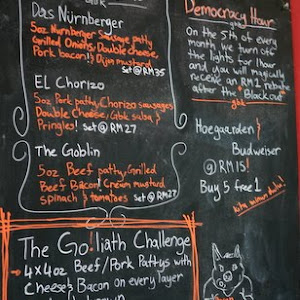 Das Nürnberger
5oz Nürnberger Sausage patty
Grilled Onions, Double cheese,
Pork bacon!! & Dijon mustard
set @ RM35
EL Chorizo
5oz Pork patty, Chorizo sausages
Double Cheese, Gbk salsa &
Pringles! set @ RM27
The Goblin
5oz Beef patty, Grilled
Beef Bacon! Cream mustard
spinach & tomatoes set @ RM27
The Go!liath Challenge
4x4oz Beef/Pork Pattys with
Cheese & Bacon on every layer
Democracy Hour
On the 5th of every
month we turn off
the lights for 1hour
and you will magically
receive an RM5 rebate
after the "Blackout"
gbk
Hoegaarden &
Budweiser
@ RM15!
Buy 5 free 1